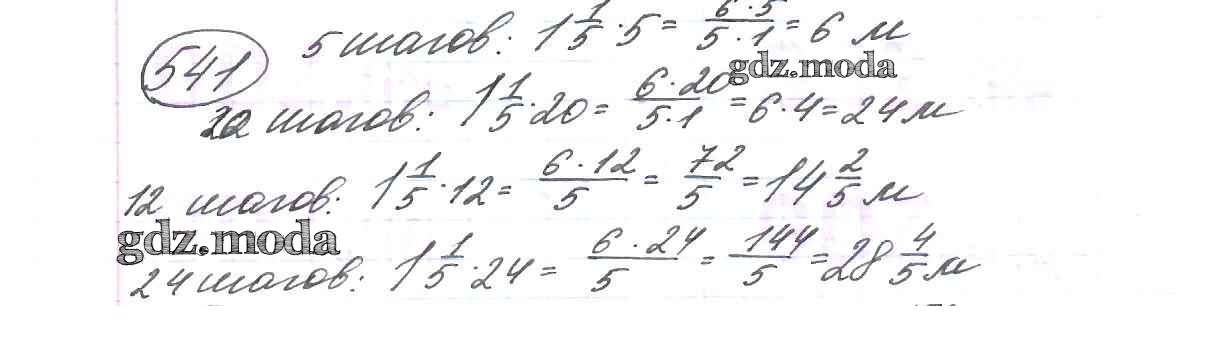 541 5 шагов: 1 1/5 · 5 = 6·5/5·1 = 6 м
gdz.moda
20 шагов: 1 1/5 · 20 = 6·20/5·1 = 6·4 = 24 м
12 шагов: 1 1/5 · 12 = 6·12/5 = 72/5 = 14 2/5 м
gdz.moda
24 шагов: 1 1/5 · 24 = 6·24/5 = 144/5 = 28 4/5 м